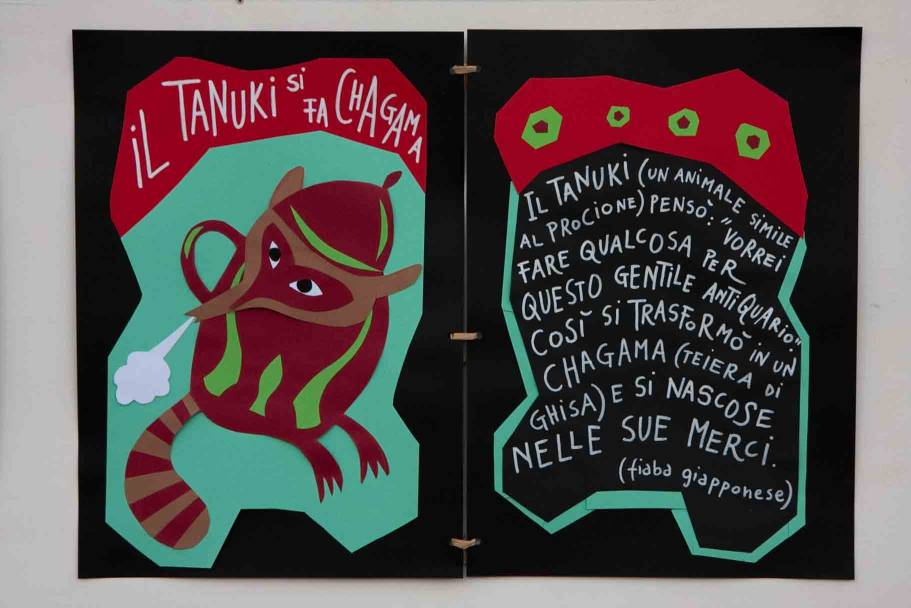 iL TANUKi si
FA CHAGAMA
IL TANUKi (UN ANiMALE SiMiLE
AL PROCiONE) PENSÒ: "VORREi
FARE QUALCOSA PER
QUESTO GENTiLE ANTiQUARiO"
COSÌ Si TRASFORMÒ iN UN
CHAGAMA (TEiERA Di
GHiSA) E Si NASCOSE
NELLE SUE MERCi.
(fiaba giapponese)